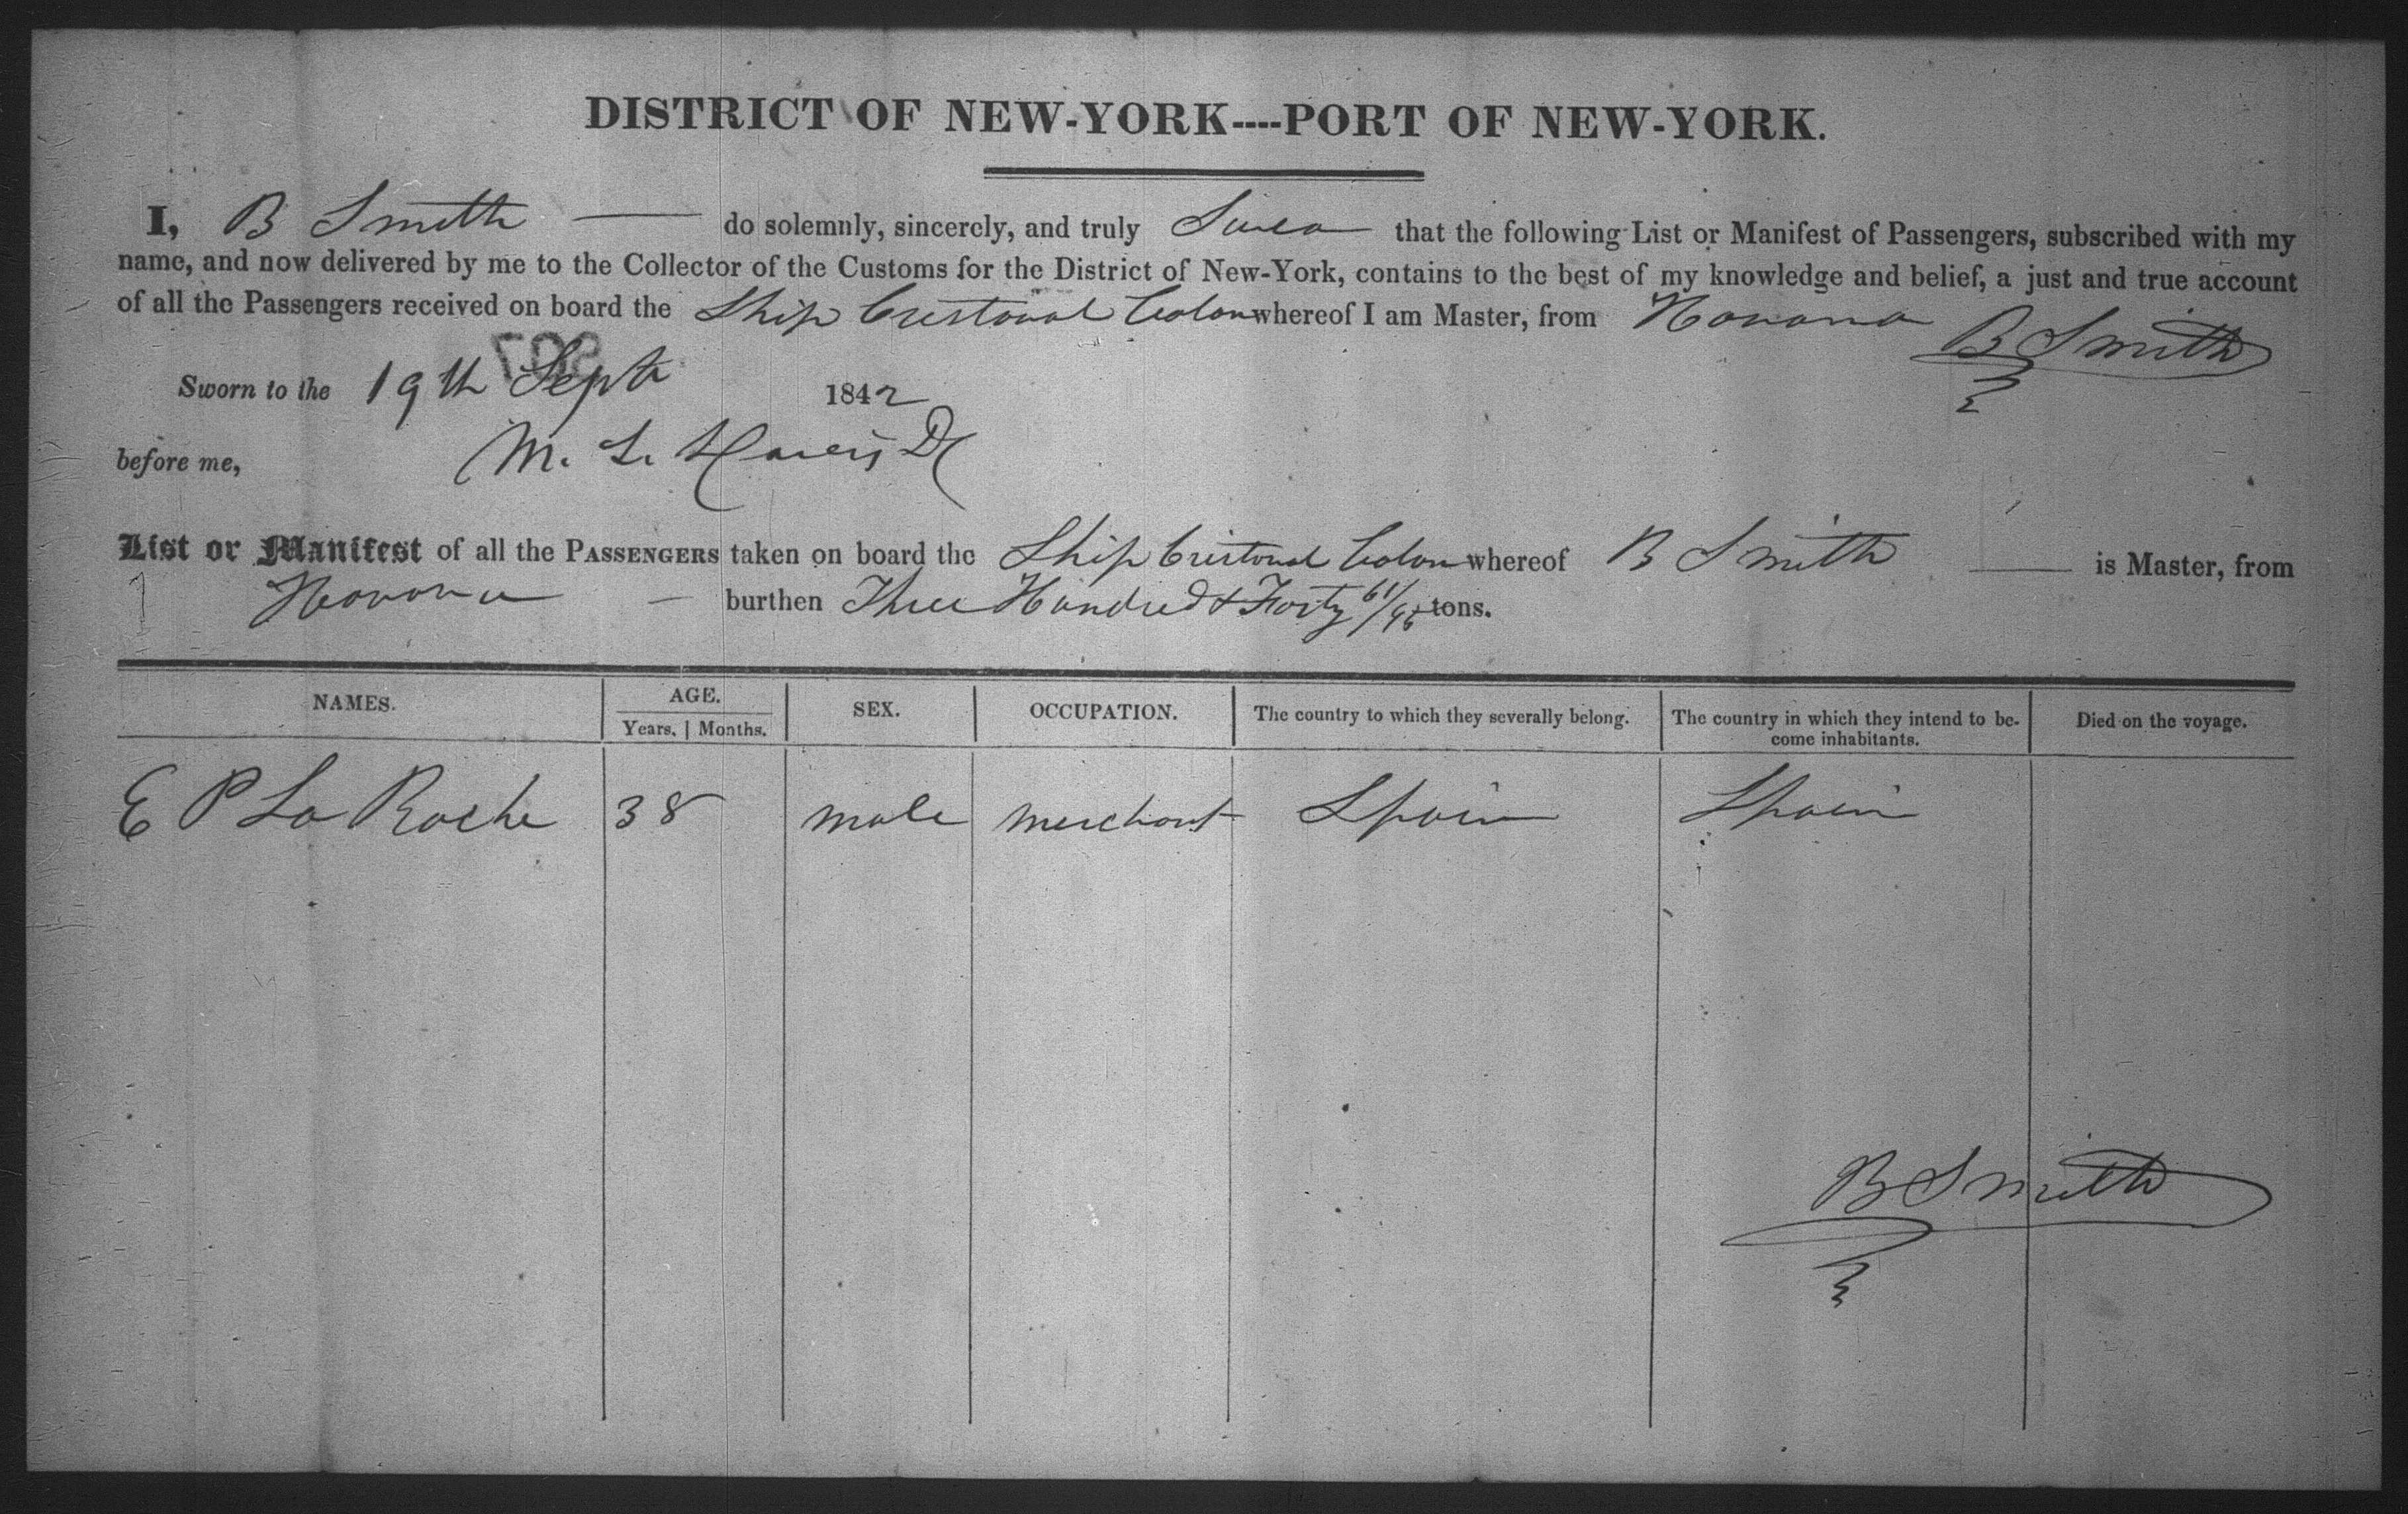 DISTRICT OF NEW-YORK----PORT OF NEW-YORK.
I, B Smith do solemnly, sincerely, and truly Swea that the following List or Manifest of Passengers, subscribed with my
name, and now delivered by me to the Collector of the Customs for the District of New-York, contains to the best of my knowledge and belief, a just and true account
of all the Passengers received on board the Ship Cristoval Colon whereof I am Master, from Havana B Smith
Sworn to the 19th Sept 1842
before me, M. L.
List or Manifest of all the PASSENGERS taken on board the Ship Cristoval Colon whereof B Smith is Master, from
Havana burthen Three Hundred & Forty 61/95 tons.
NAMES. AGE. SEX. OCCUPATION. The country to which they severally belong. The country in which they intend to be- Died on the voyage.
Years. Months. come inhabitants.
E P La Roche 38 male merchant Spain Spain
B Smith